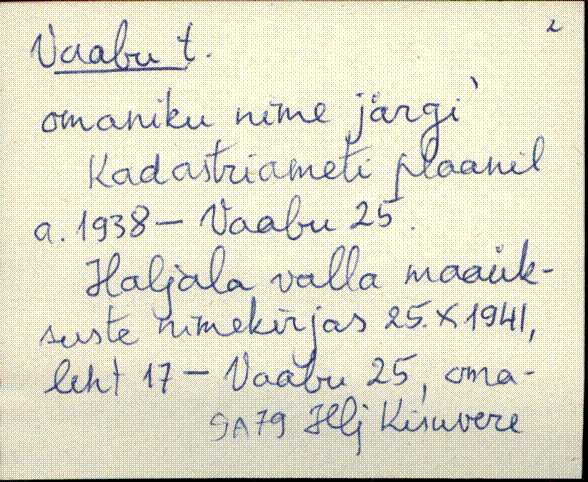 2
Vaabu t.
omaniku nime järgi
Kadastriameti plaanil
a. 1938 – Vaabu 25.
Haljala valla maaük-
suste nimekirjas 25.X 1941,
leht 17 – Vaabu 25, oma-
SA79 Hlj Kisuvere